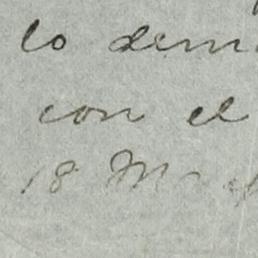 lo dem
con el
18 M